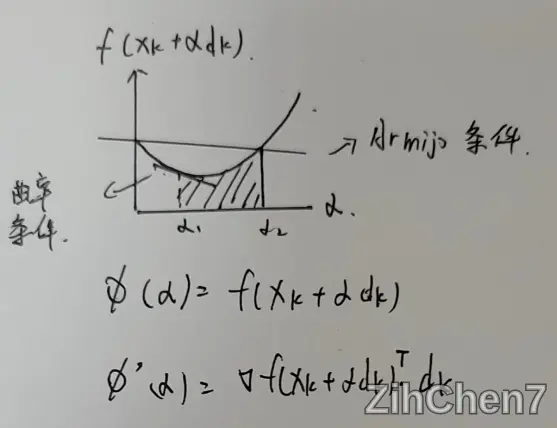 f(xk+αdk).
→ Armijo 条件.
曲率
条件.
α1 α2 α.
ϕ(α)= f(xk+αdk)
ϕ'(α)= ∇f(xk+αdk)ᵀ dk
ZihChen7